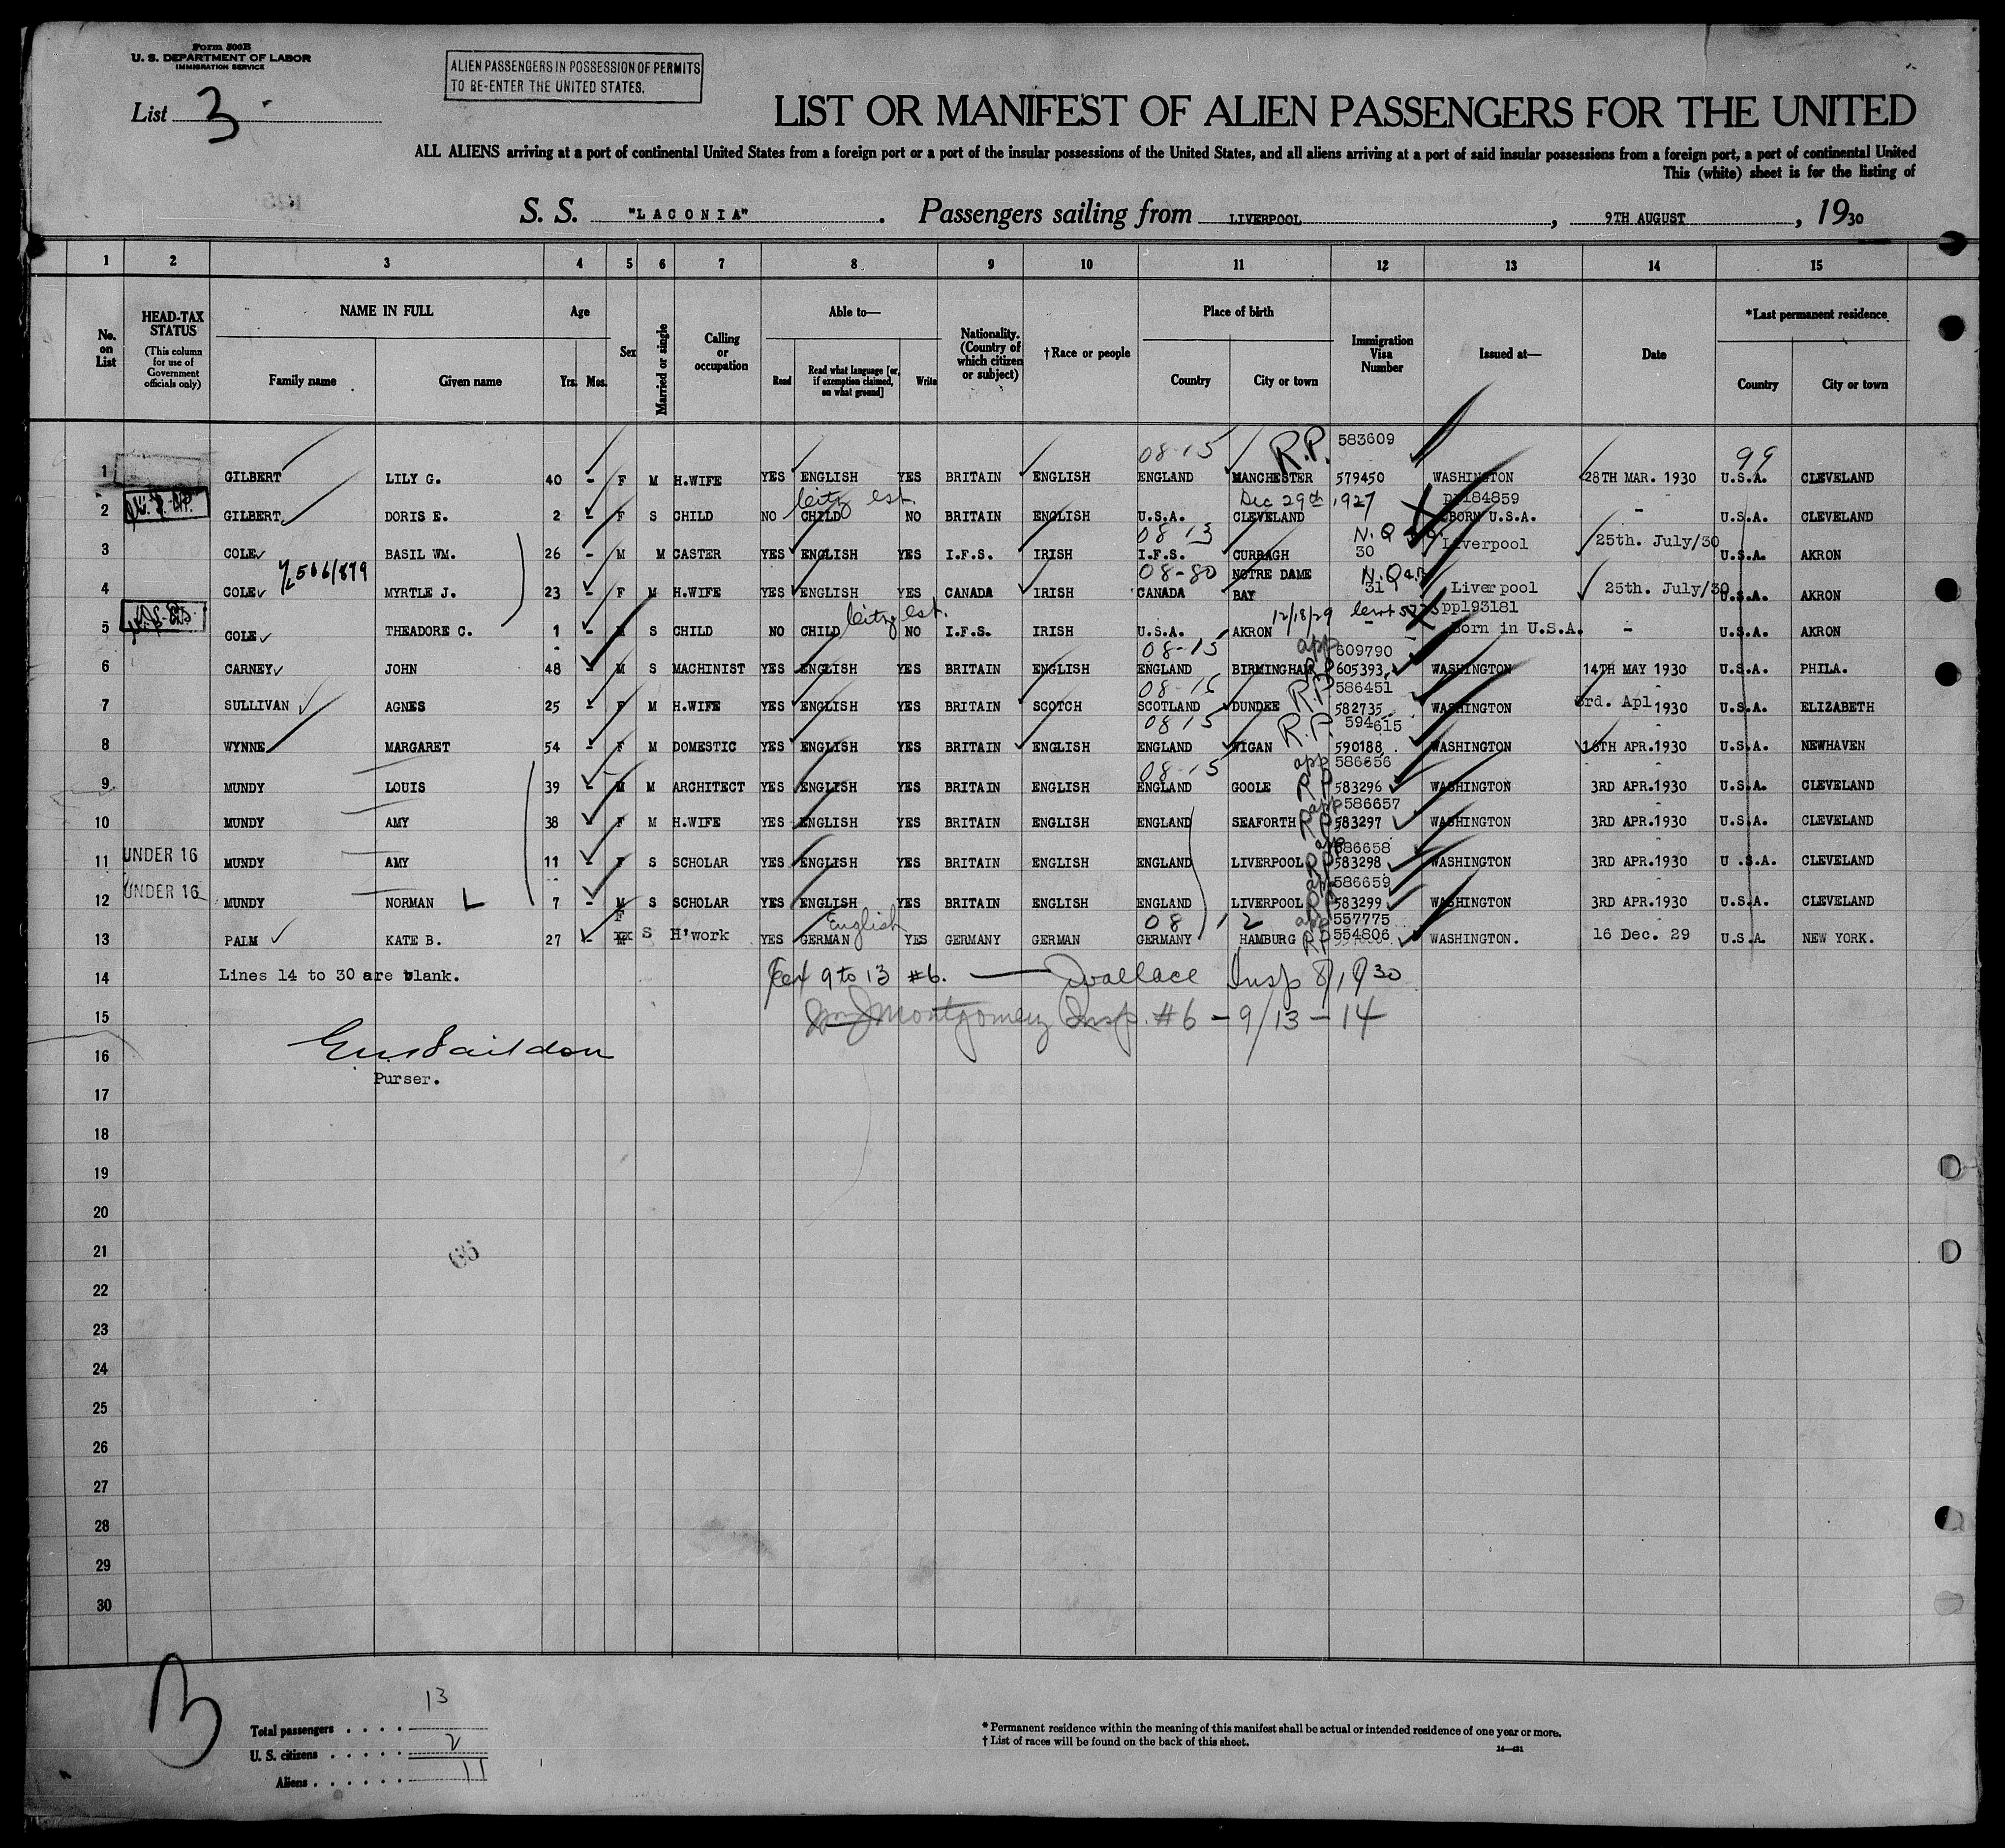 Form 500B
U. S. DEPARTMENT OF LABOR
IMMIGRATION SERVICE
ALIEN PASSENGERS IN POSSESSION OF PERMITS
TO RE-ENTER THE UNITED STATES.
List 3
LIST OR MANIFEST OF ALIEN PASSENGERS FOR THE UNITED
ALL ALIENS arriving at a port of continental United States from a foreign port or a port of the insular possessions of the United States, and all aliens arriving at a port of said insular possessions from a foreign port, a port of continental United
This (white) sheet is for the listing of
S. S. "LACONIA". Passengers sailing from LIVERPOOL, 9TH AUGUST, 1930
1 2 3 4 5 6 7 8 9 10 11 12 13 14 15
No. on List
HEAD-TAX STATUS
(This column for use of Government officials only)
NAME IN FULL
Family name Given name
Age
Yrs. Mos.
Sex
Married or single
Calling or occupation
Able to—
Read Read what language [or, if exemption claimed, on what ground] Write
Nationality. (Country of which citizen or subject)
†Race or people
Place of birth
Country City or town
Immigration Visa Number
Issued at—
Date
*Last permanent residence
Country City or town
08-15 R.P. 583609 99
1 GILBERT LILY G. 40 - F M H.WIFE YES ENGLISH YES BRITAIN ENGLISH ENGLAND MANCHESTER 579450 WASHINGTON 28TH MAR. 1930 U.S.A. CLEVELAND
citz est. Dec 29th, 1927 pp184859
2 GILBERT DORIS E. 2 - F S CHILD NO CHILD NO BRITAIN ENGLISH U.S.A. CLEVELAND BORN U.S.A. - U.S.A. CLEVELAND
08 13 N.Q
3 COLE BASIL WM. 26 - M M CASTER YES ENGLISH YES I.F.S. IRISH I.F.S. CURRAGH 30 Liverpool 25th. July/30 U.S.A. AKRON
08-80 NOTRE DAME N.Q
4 COLE MYRTLE J. 23 - F M H.WIFE YES ENGLISH YES CANADA IRISH CANADA BAY 31 Liverpool 25th. July/30 U.S.A. AKRON
citz est. 12/18/29 pp193181
5 COLE THEADORE C. 1 - M S CHILD NO CHILD NO I.F.S. IRISH U.S.A. AKRON - Born in U.S.A. - U.S.A. AKRON
08-15 app 609790
6 CARNEY JOHN 48 - M S MACHINIST YES ENGLISH YES BRITAIN ENGLISH ENGLAND BIRMINGHAM 605393 WASHINGTON 14TH MAY 1930 U.S.A. PHILA.
08-16 R.P. 586451
7 SULLIVAN AGNES 25 - F M H.WIFE YES ENGLISH YES BRITAIN SCOTCH SCOTLAND DUNDEE 582735 WASHINGTON 3rd. Apl 1930 U.S.A. ELIZABETH
08 15 R.P. 594615
8 WYNNE MARGARET 54 - F M DOMESTIC YES ENGLISH YES BRITAIN ENGLISH ENGLAND WIGAN 590188 WASHINGTON 16TH APR.1930 U.S.A. NEWHAVEN
08-15 app 586656
9 MUNDY LOUIS 39 - M M ARCHITECT YES ENGLISH YES BRITAIN ENGLISH ENGLAND GOOLE RP 583296 WASHINGTON 3RD APR.1930 U.S.A. CLEVELAND
app 586657
10 MUNDY AMY 38 - F M H.WIFE YES ENGLISH YES BRITAIN ENGLISH ENGLAND SEAFORTH RP 583297 WASHINGTON 3RD APR.1930 U.S.A. CLEVELAND
app 586658
11 UNDER 16 MUNDY AMY 11 - F S SCHOLAR YES ENGLISH YES BRITAIN ENGLISH ENGLAND LIVERPOOL RP 583298 WASHINGTON 3RD APR.1930 U.S.A. CLEVELAND
app 586659
12 UNDER 16 MUNDY NORMAN 7 - M S SCHOLAR YES ENGLISH YES BRITAIN ENGLISH ENGLAND LIVERPOOL RP 583299 WASHINGTON 3RD APR.1930 U.S.A. CLEVELAND
F English 08 12 app 557775
13 PALM KATE B. 27 - S H'work YES GERMAN YES GERMANY GERMAN GERMANY HAMBURG RP 554806 WASHINGTON. 16 Dec. 29 U.S.A. NEW YORK.
14 Lines 14 to 30 are blank. 9 to 13 #6. — Wallace Insp
15 Montgomery Insp. #6 - 9/13 - 14
16
Purser.
17
18
19
20
21
22
23
24
25
26
27
28
29
30
B
Total passengers . . . . 13
U. S. citizens . . . . . 2
Aliens . . . . . . 11
* Permanent residence within the meaning of this manifest shall be actual or intended residence of one year or more.
† List of races will be found on the back of this sheet.